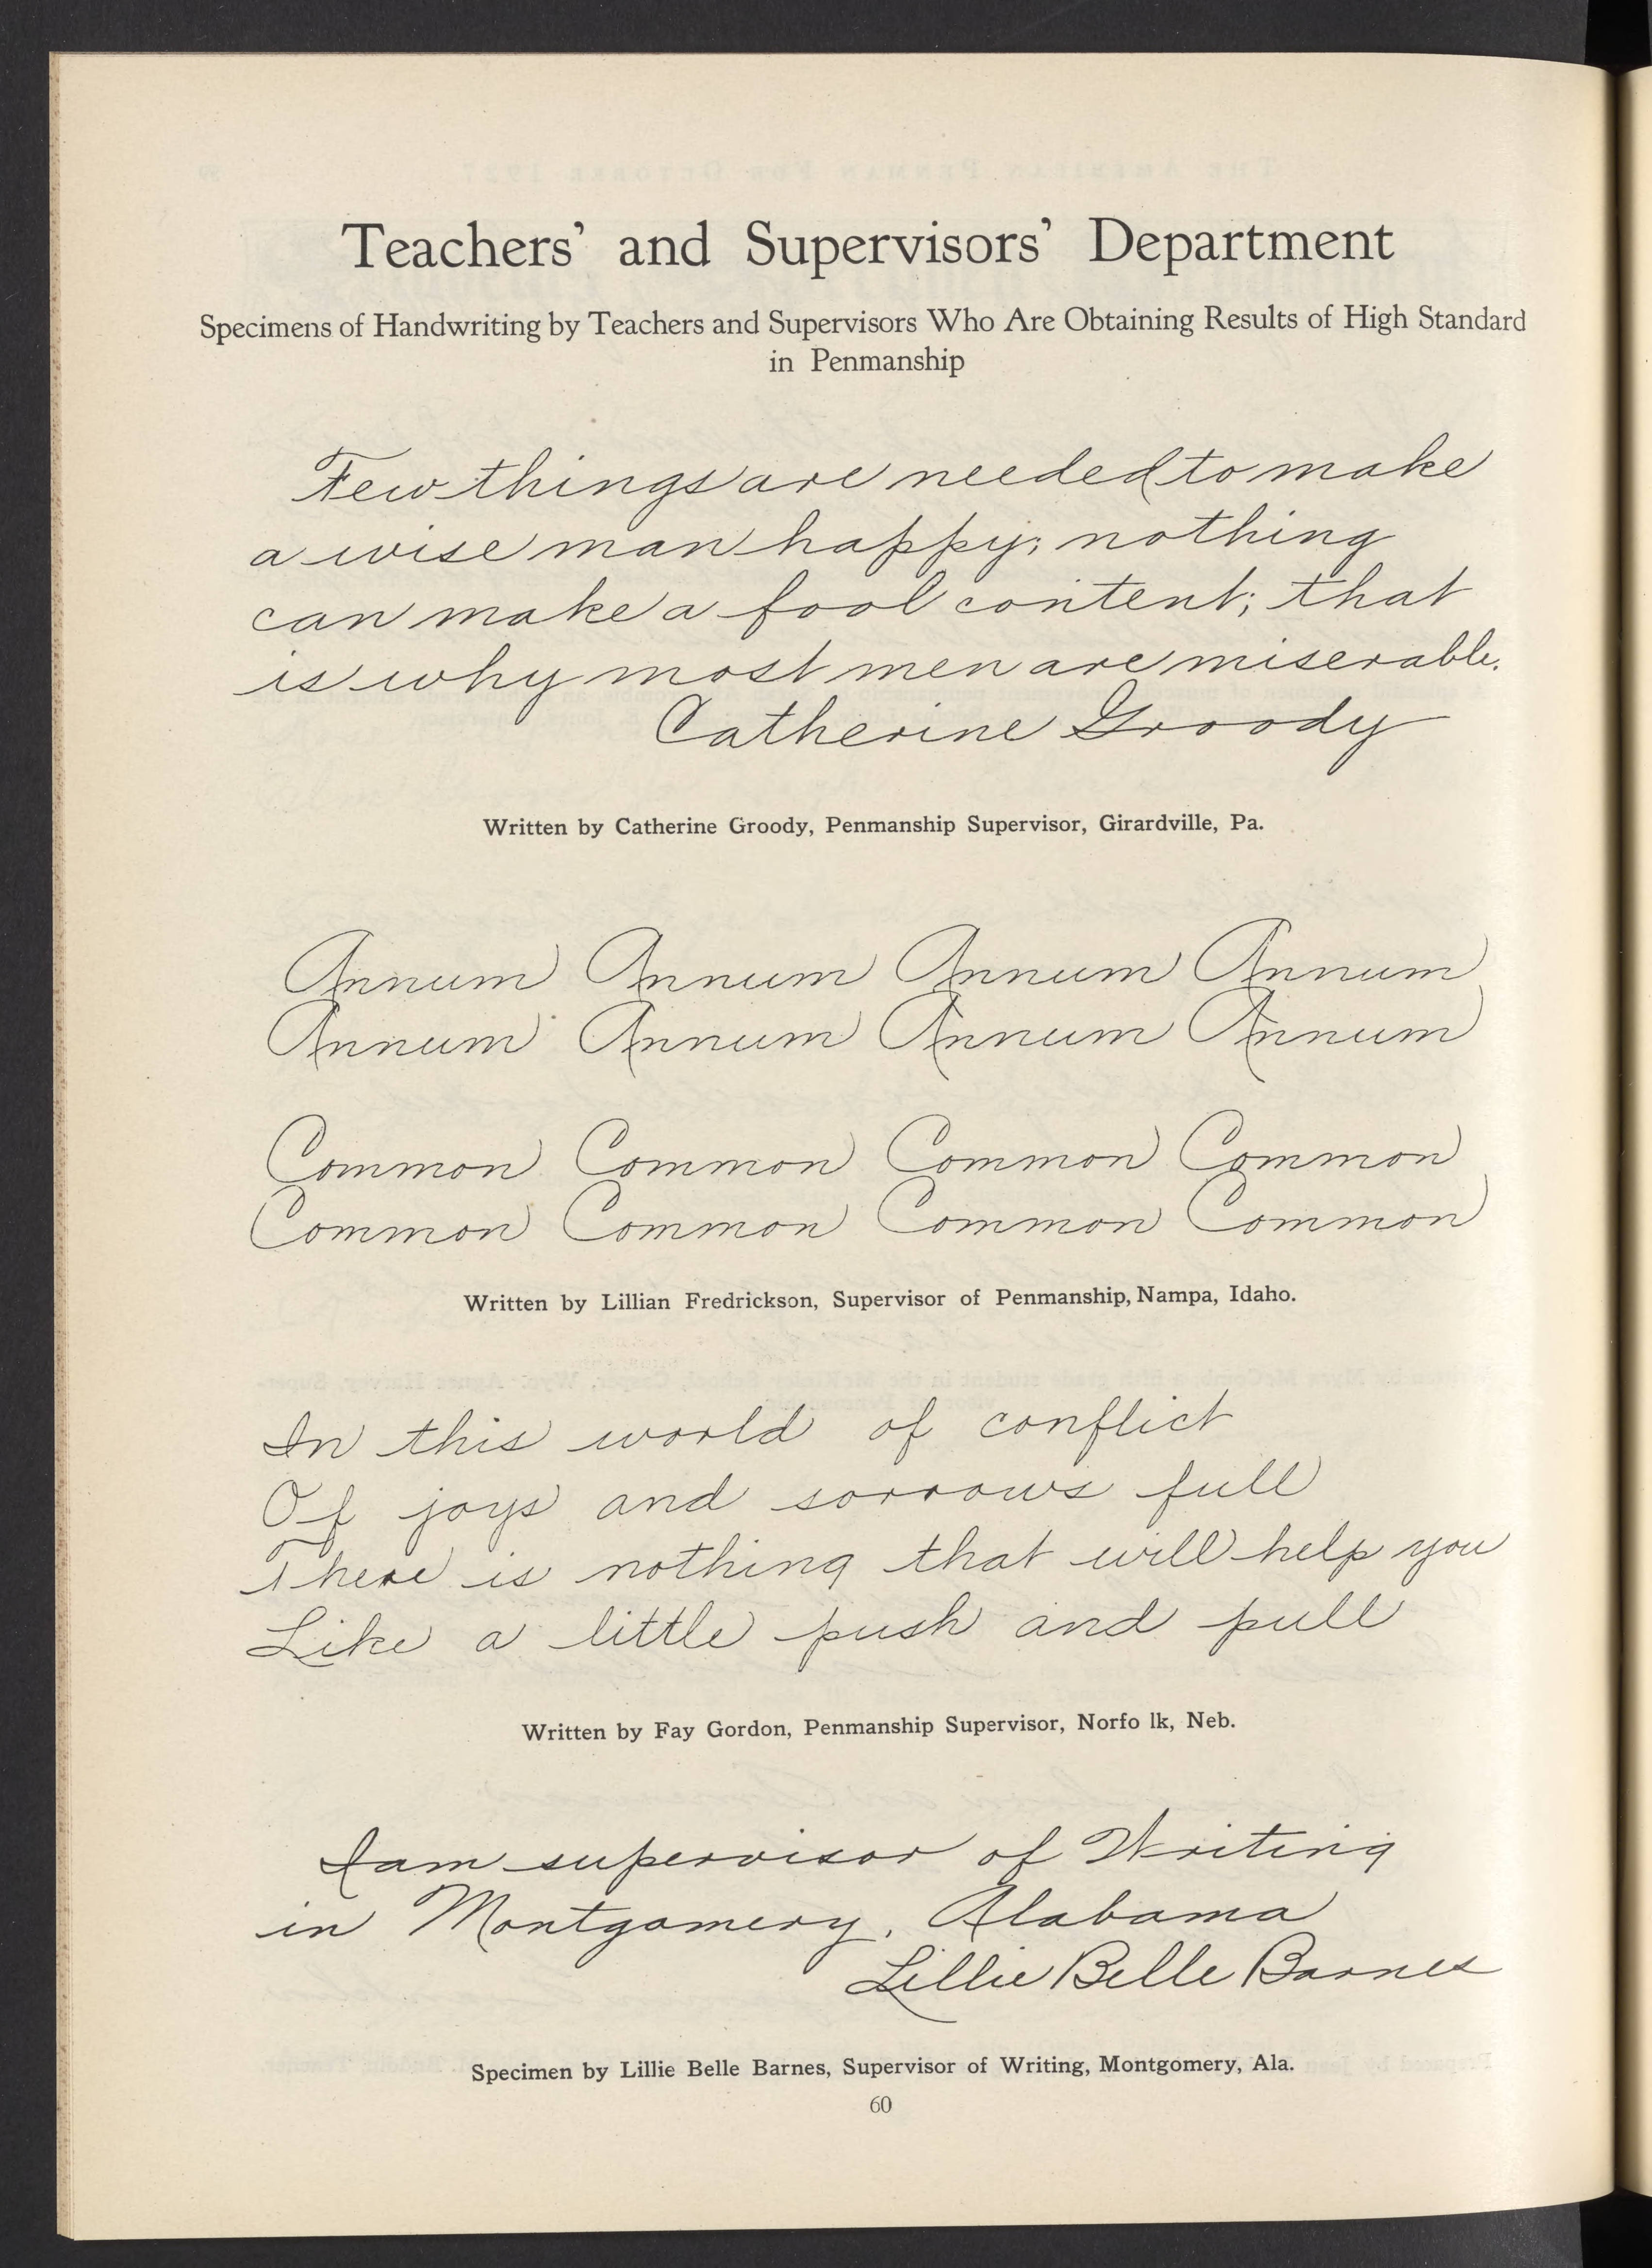 Teachers' and Supervisors' Department
Specimens of Handwriting by Teachers and Supervisors Who Are Obtaining Results of High Standard
in Penmanship
Few things are needed to make
a wise man happy; nothing
can make a fool content; that
is why most men are miserable.
Catherine Groody
Written by Catherine Groody, Penmanship Supervisor, Girardville, Pa.
Annum Annum Annum Annum
Annum Annum Annum Annum
Common Common Common Common
Common Common Common Common
Written by Lillian Fredrickson, Supervisor of Penmanship, Nampa, Idaho.
In this world of conflict
Of joys and sorrows full
There is nothing that will help you
Like a little push and pull
Written by Fay Gordon, Penmanship Supervisor, Norfo lk, Neb.
I am supervisor of Writing
in Montgomery, Alabama
Lillie Belle Barnes
Specimen by Lillie Belle Barnes, Supervisor of Writing, Montgomery, Ala.
60